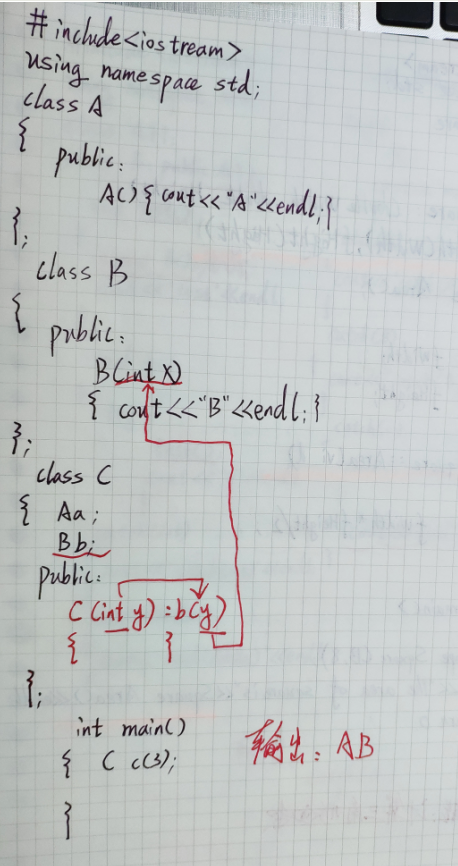 #include<iostream>
using namespace std;
class A
{
public:
A(){cout<<"A"<<endl;}
};
class B
{
public:
B(int X)
{ cout<<"B"<<endl;}
};
class C
{ Aa;
Bb;
public:
C(int y):b(y)
{ }
};
int main()
{ C c(3);
输出: AB
}